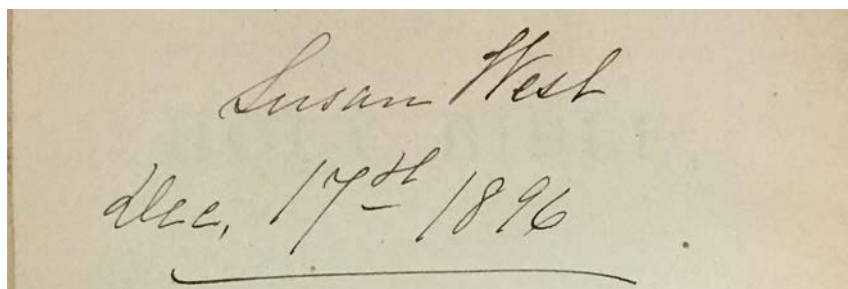 Susan West
Dec, 17th 1896